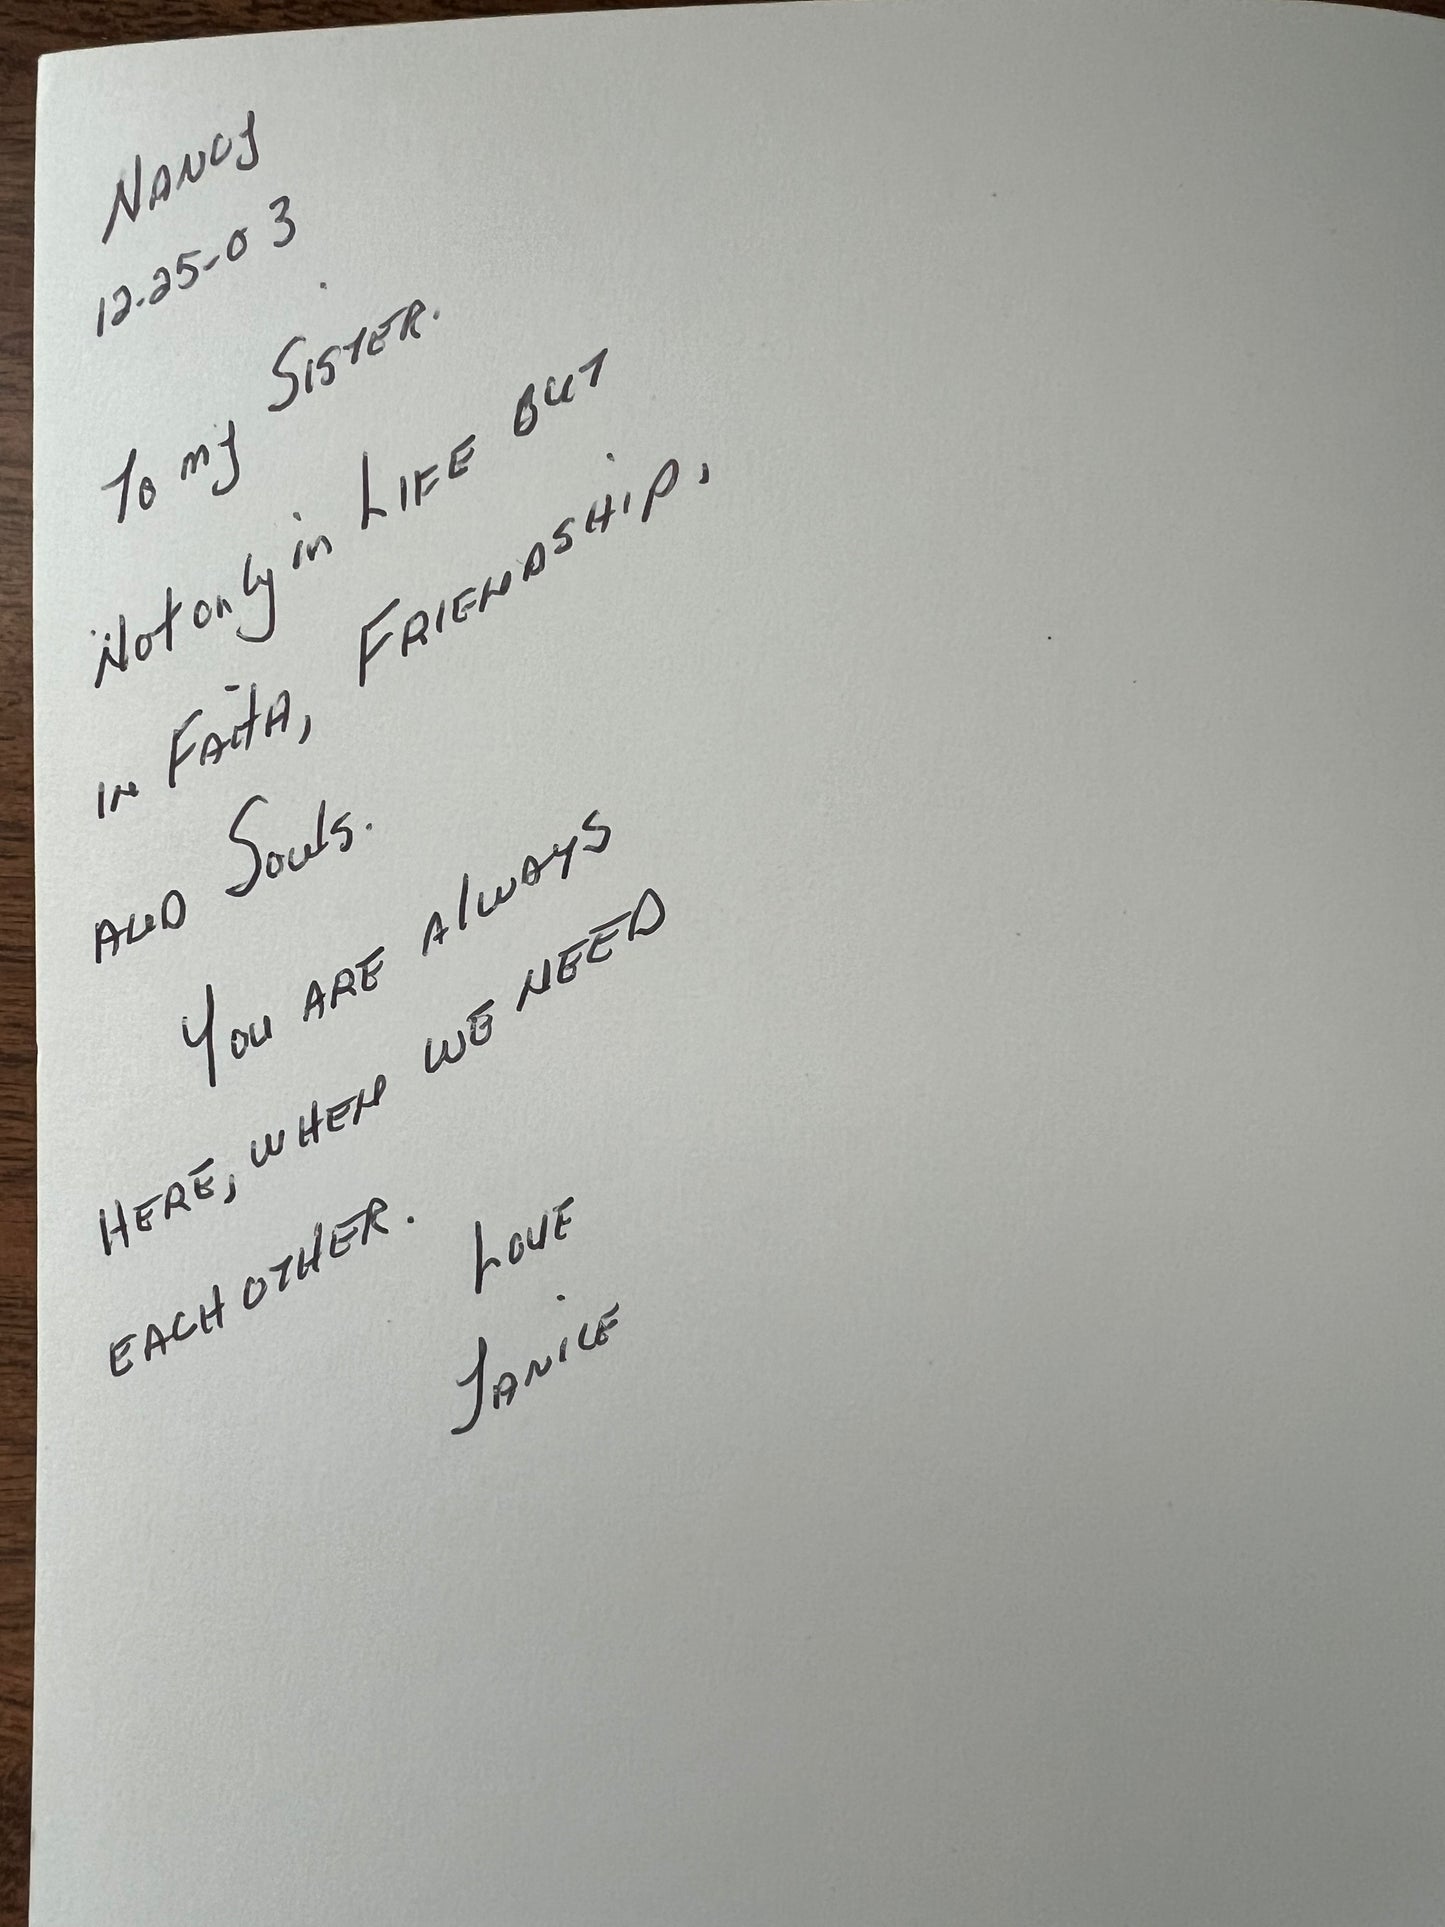 NANCY
12-25-03
To my SISTER.
Not only in LIFE BUT
IN FAITH, FRIENDSHIP,
AND Souls.
You ARE AlWAYS
HERE, WHEN WE NEED
EACH OTHER.
LOVE
JANICE